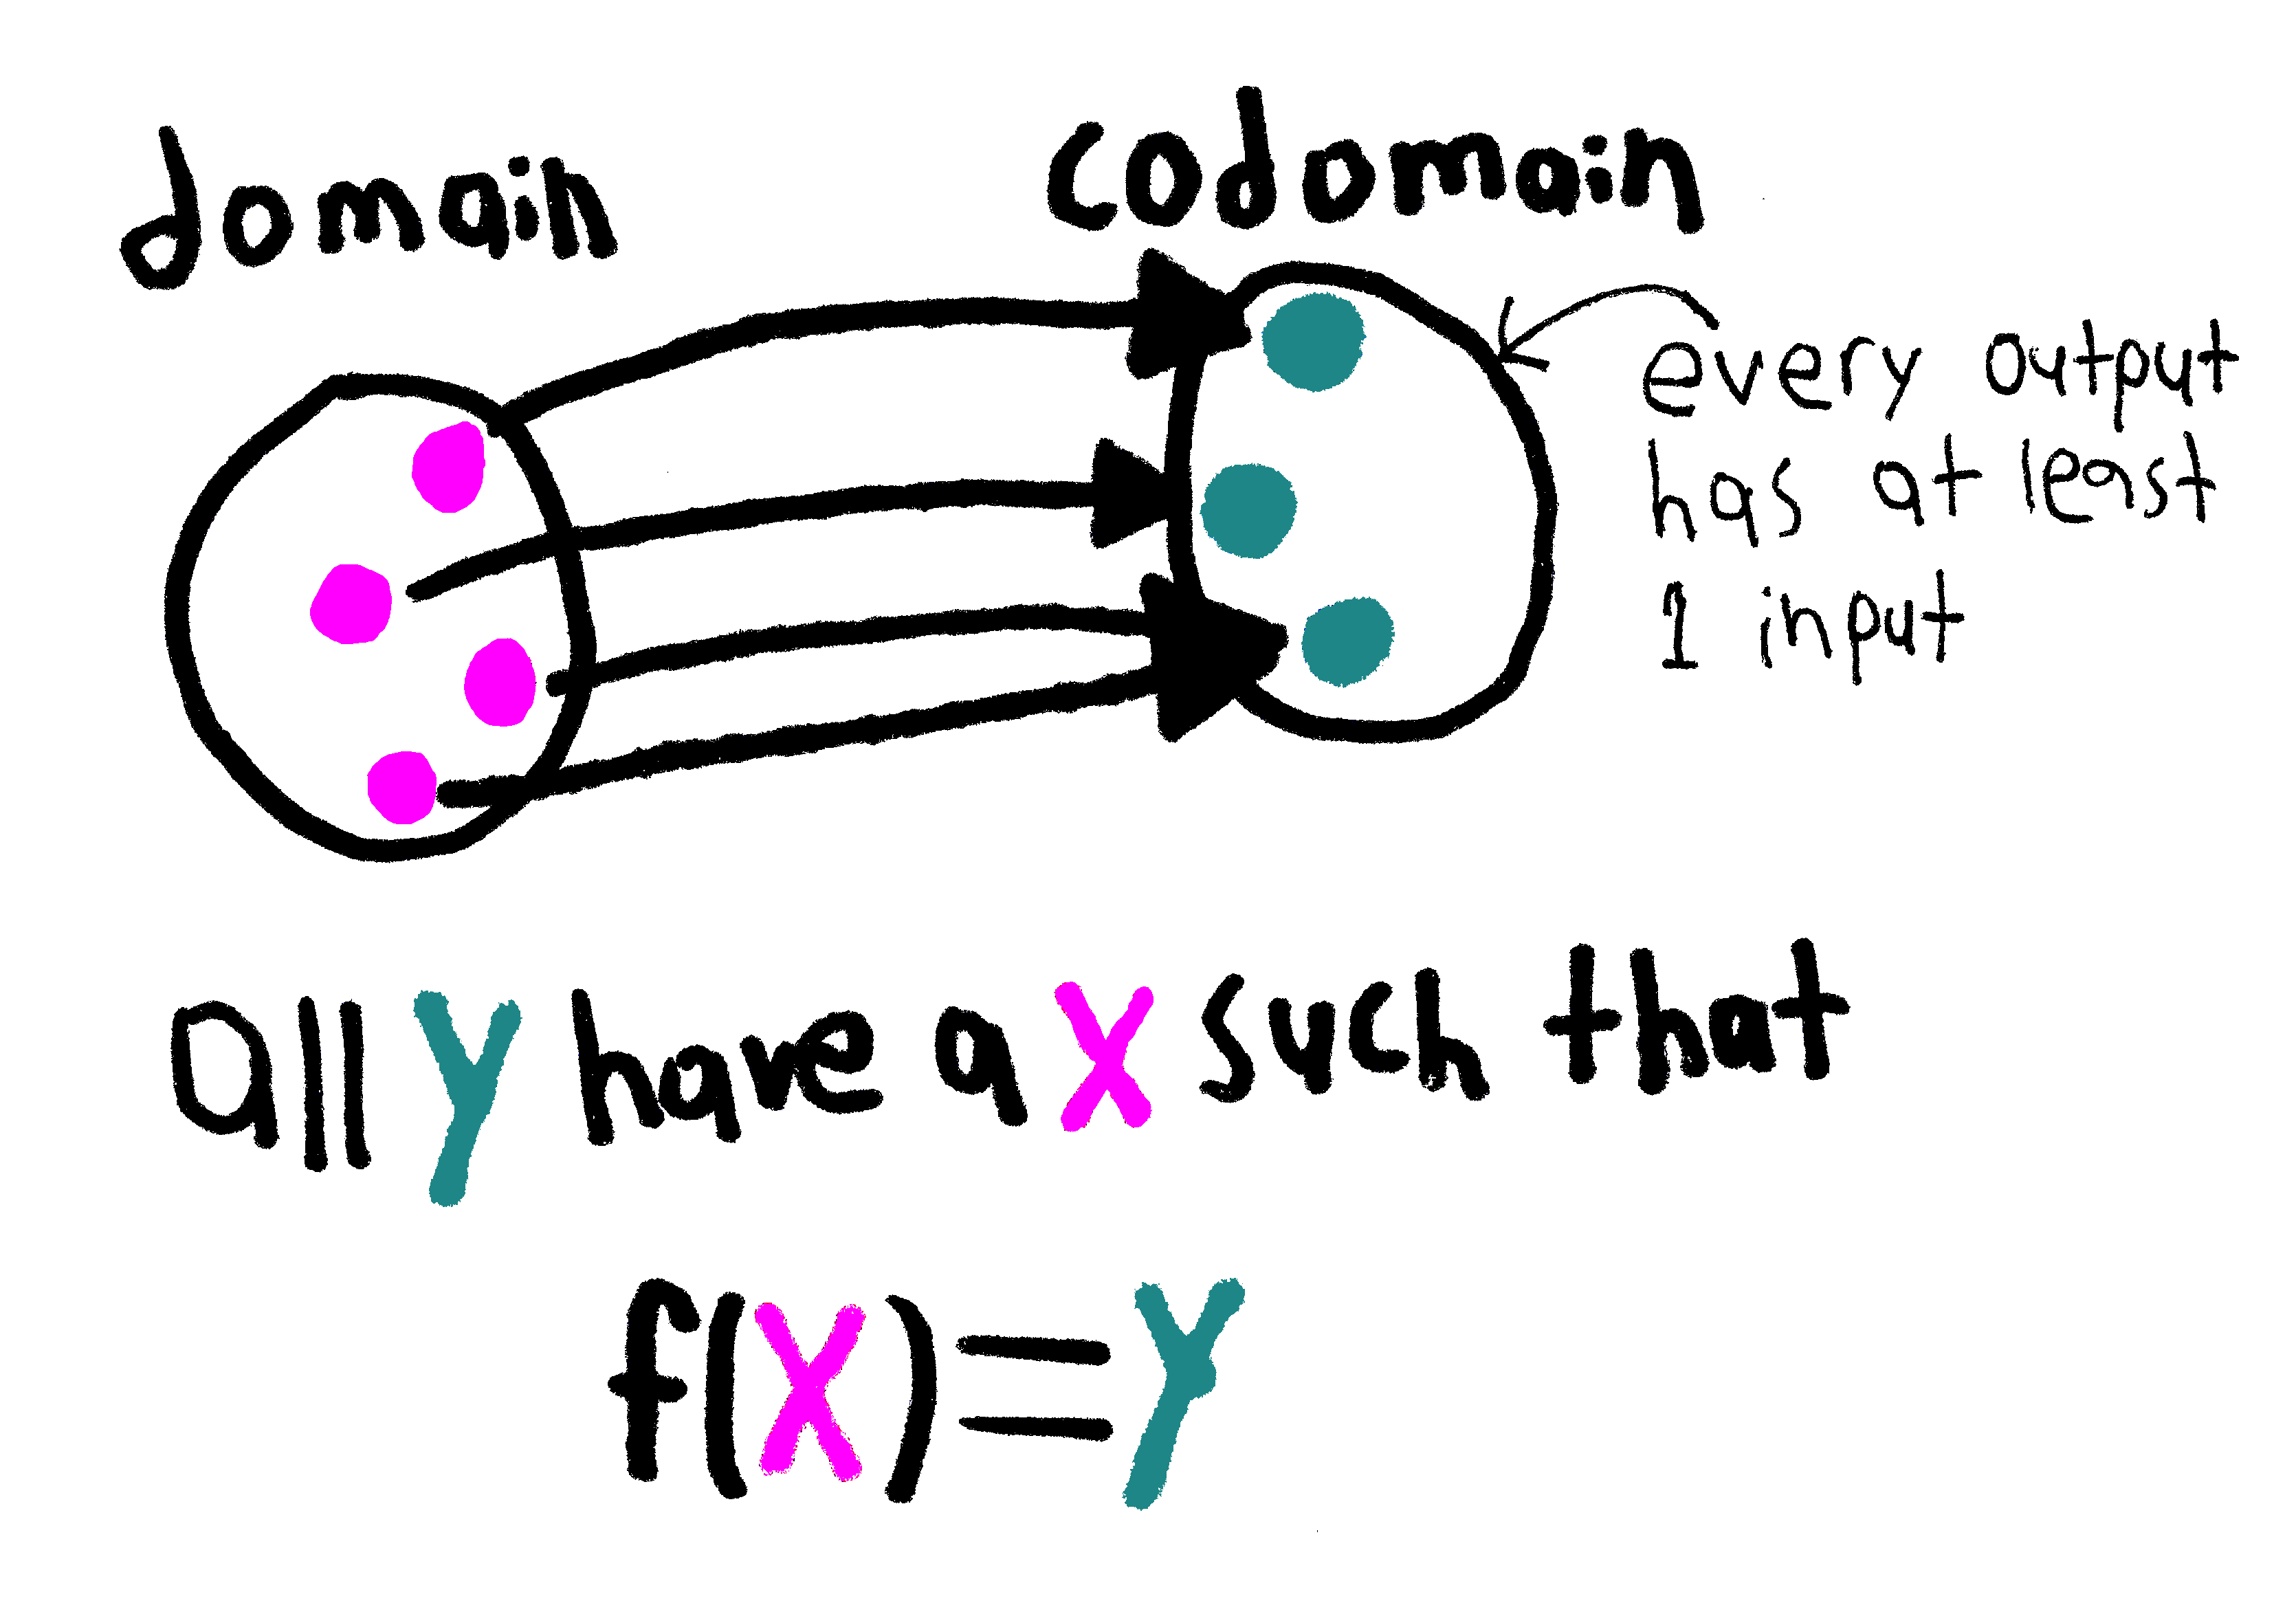 domain
codomain
every output
has at least
1 input
all y have a x such that
f(x)=y